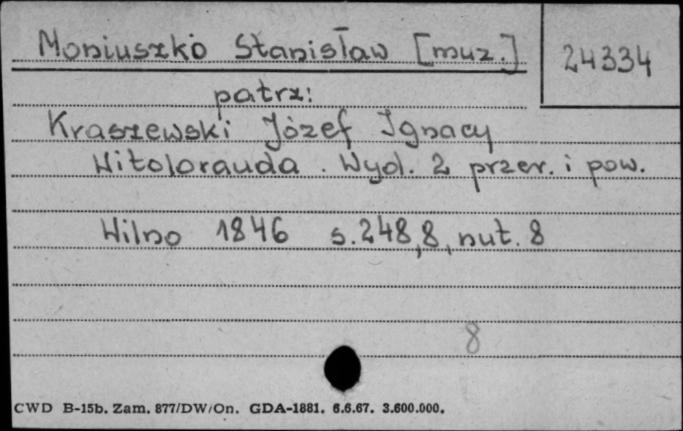 Moniuszko Stanisław [muz.]
24334
patrz:
Kraszewski Józef Ignacy
Witolorauda. Wyd. 2 przer. i pow.
Wilno 1846 s. 248, 8, nut. 8
8
CWD B-15b. Zam. 877/DW/On. GDA-1881. 6.6.67. 3.600.000.